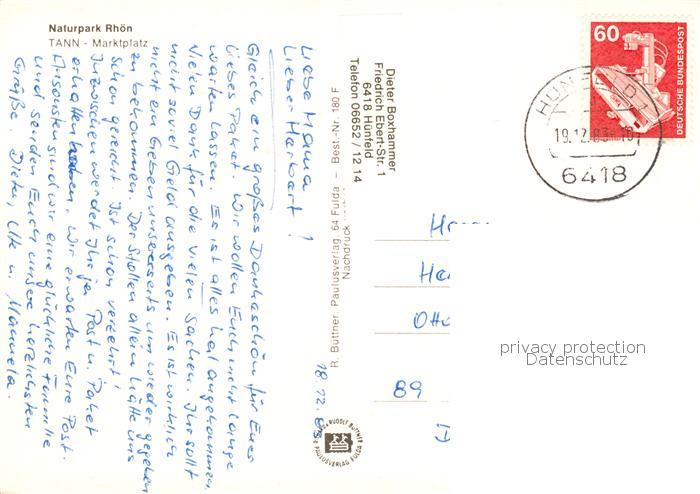 Naturpark Rhön
TANN - Marktplatz
Liebe Mama!
Lieber Herbert!
Gleich ein großes Dankeschön für Euer
liebes Paket. Wir wollen Euch nicht lange
warten lassen. Es ist alles hal angekommen.
Vielen Dank für die vielen Sachen. Ihr sollt
nicht soviel Geld ausgeben. Es ist wirklich
nicht ein Geben unsererseits um wieder gegeben
zu bekommen. Der Stollen allein hätte uns
schon gereicht. Ist schon verzehrt!
Inzwischen werdet Ihr ja Post u. Paket
erhalten haben. Wir erwarten Eure Post.
Ansonsten sind wir eine glückliche Familie
und senden Euch unsere herzlichsten
Grüße. Dieter, Ute u. Manuela.
18.12.83
R. Büttner, Paulusverlag, 64 Fulda – Best.-Nr. 180 F
Nachdruck
RUDOLF BÜTTNER
PAULUSVERLAG FULDA
Dieter Boxhammer
Friedrich Ebert-Str. 1
6418 Hünfeld
Telefon 06652 / 12 14
60
DEUTSCHE BUNDESPOST
HÜNFELD 1
19.12.83
6418
Otto
89
privacy protection
Datenschutz